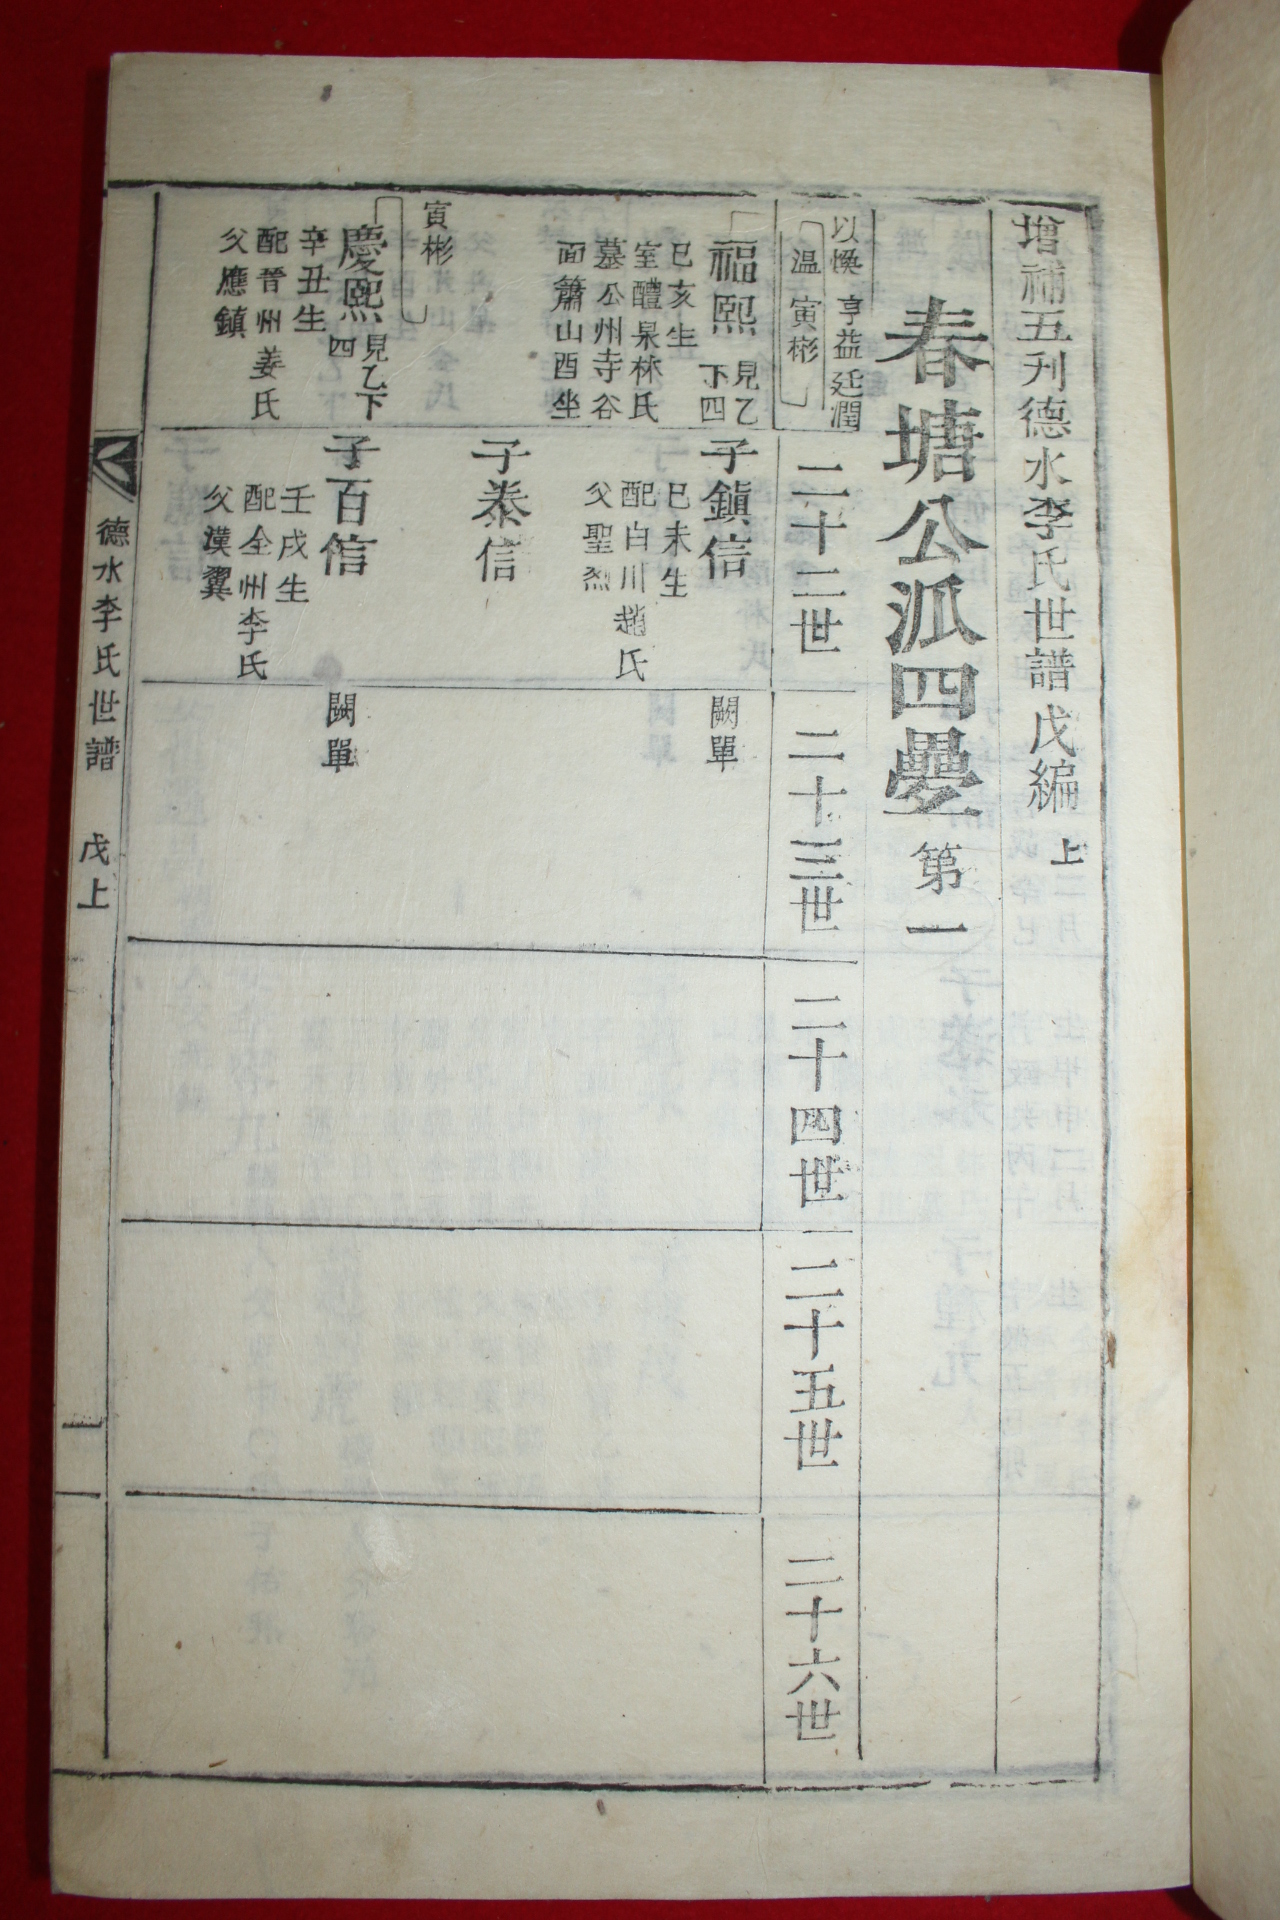 增補五刋德水李氏世譜戊編 上
春塘公派四疊 第一
以煥 亨益廷潤
温 寅彬
二十二世
二十三世
二十四世
二十五世
二十六世
福熙 見乙下四
巳亥生
室醴泉林氏
墓公州寺谷
面簫山酉坐
子鎭信
巳未生
配白川趙氏
父聖烈
闕單
子泰信
寅彬
慶熙 見乙下四
辛丑生
配晉州姜氏
父應鎮
子百信
壬戌生
配全州李氏
父漢翼
闕單
德水李氏世譜 戊上 一